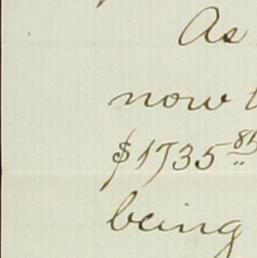 As
now
$1735
being